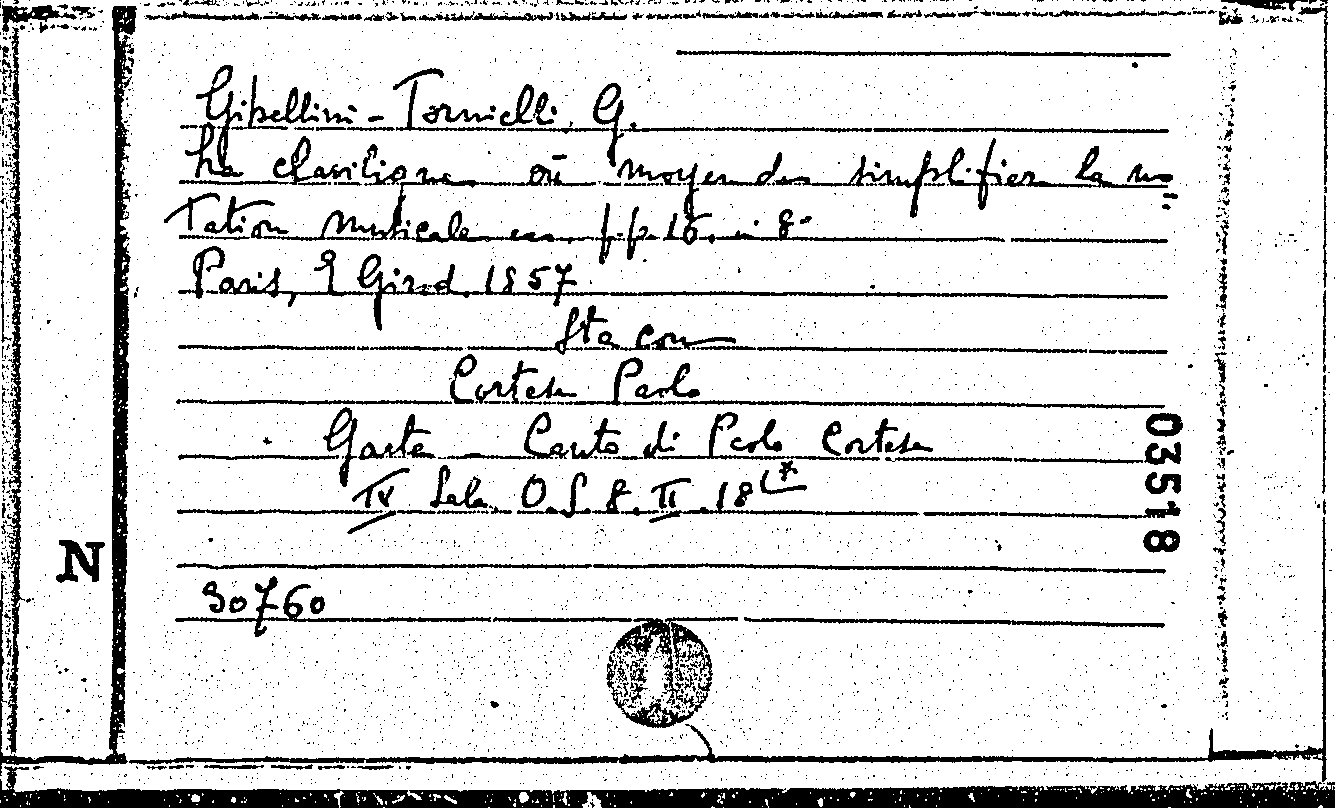 Gibellini-Tornielli, G.
La claviligne ou moyen de simplifier la no=
tation musicale ecc. pp. 16. in 8°
Paris, E Girod. 1857
Sta con
Cortese Paolo
Gaeta - Canto di Paolo Cortese
IV Sala O.S. 8. II. 18
03518
N
30760